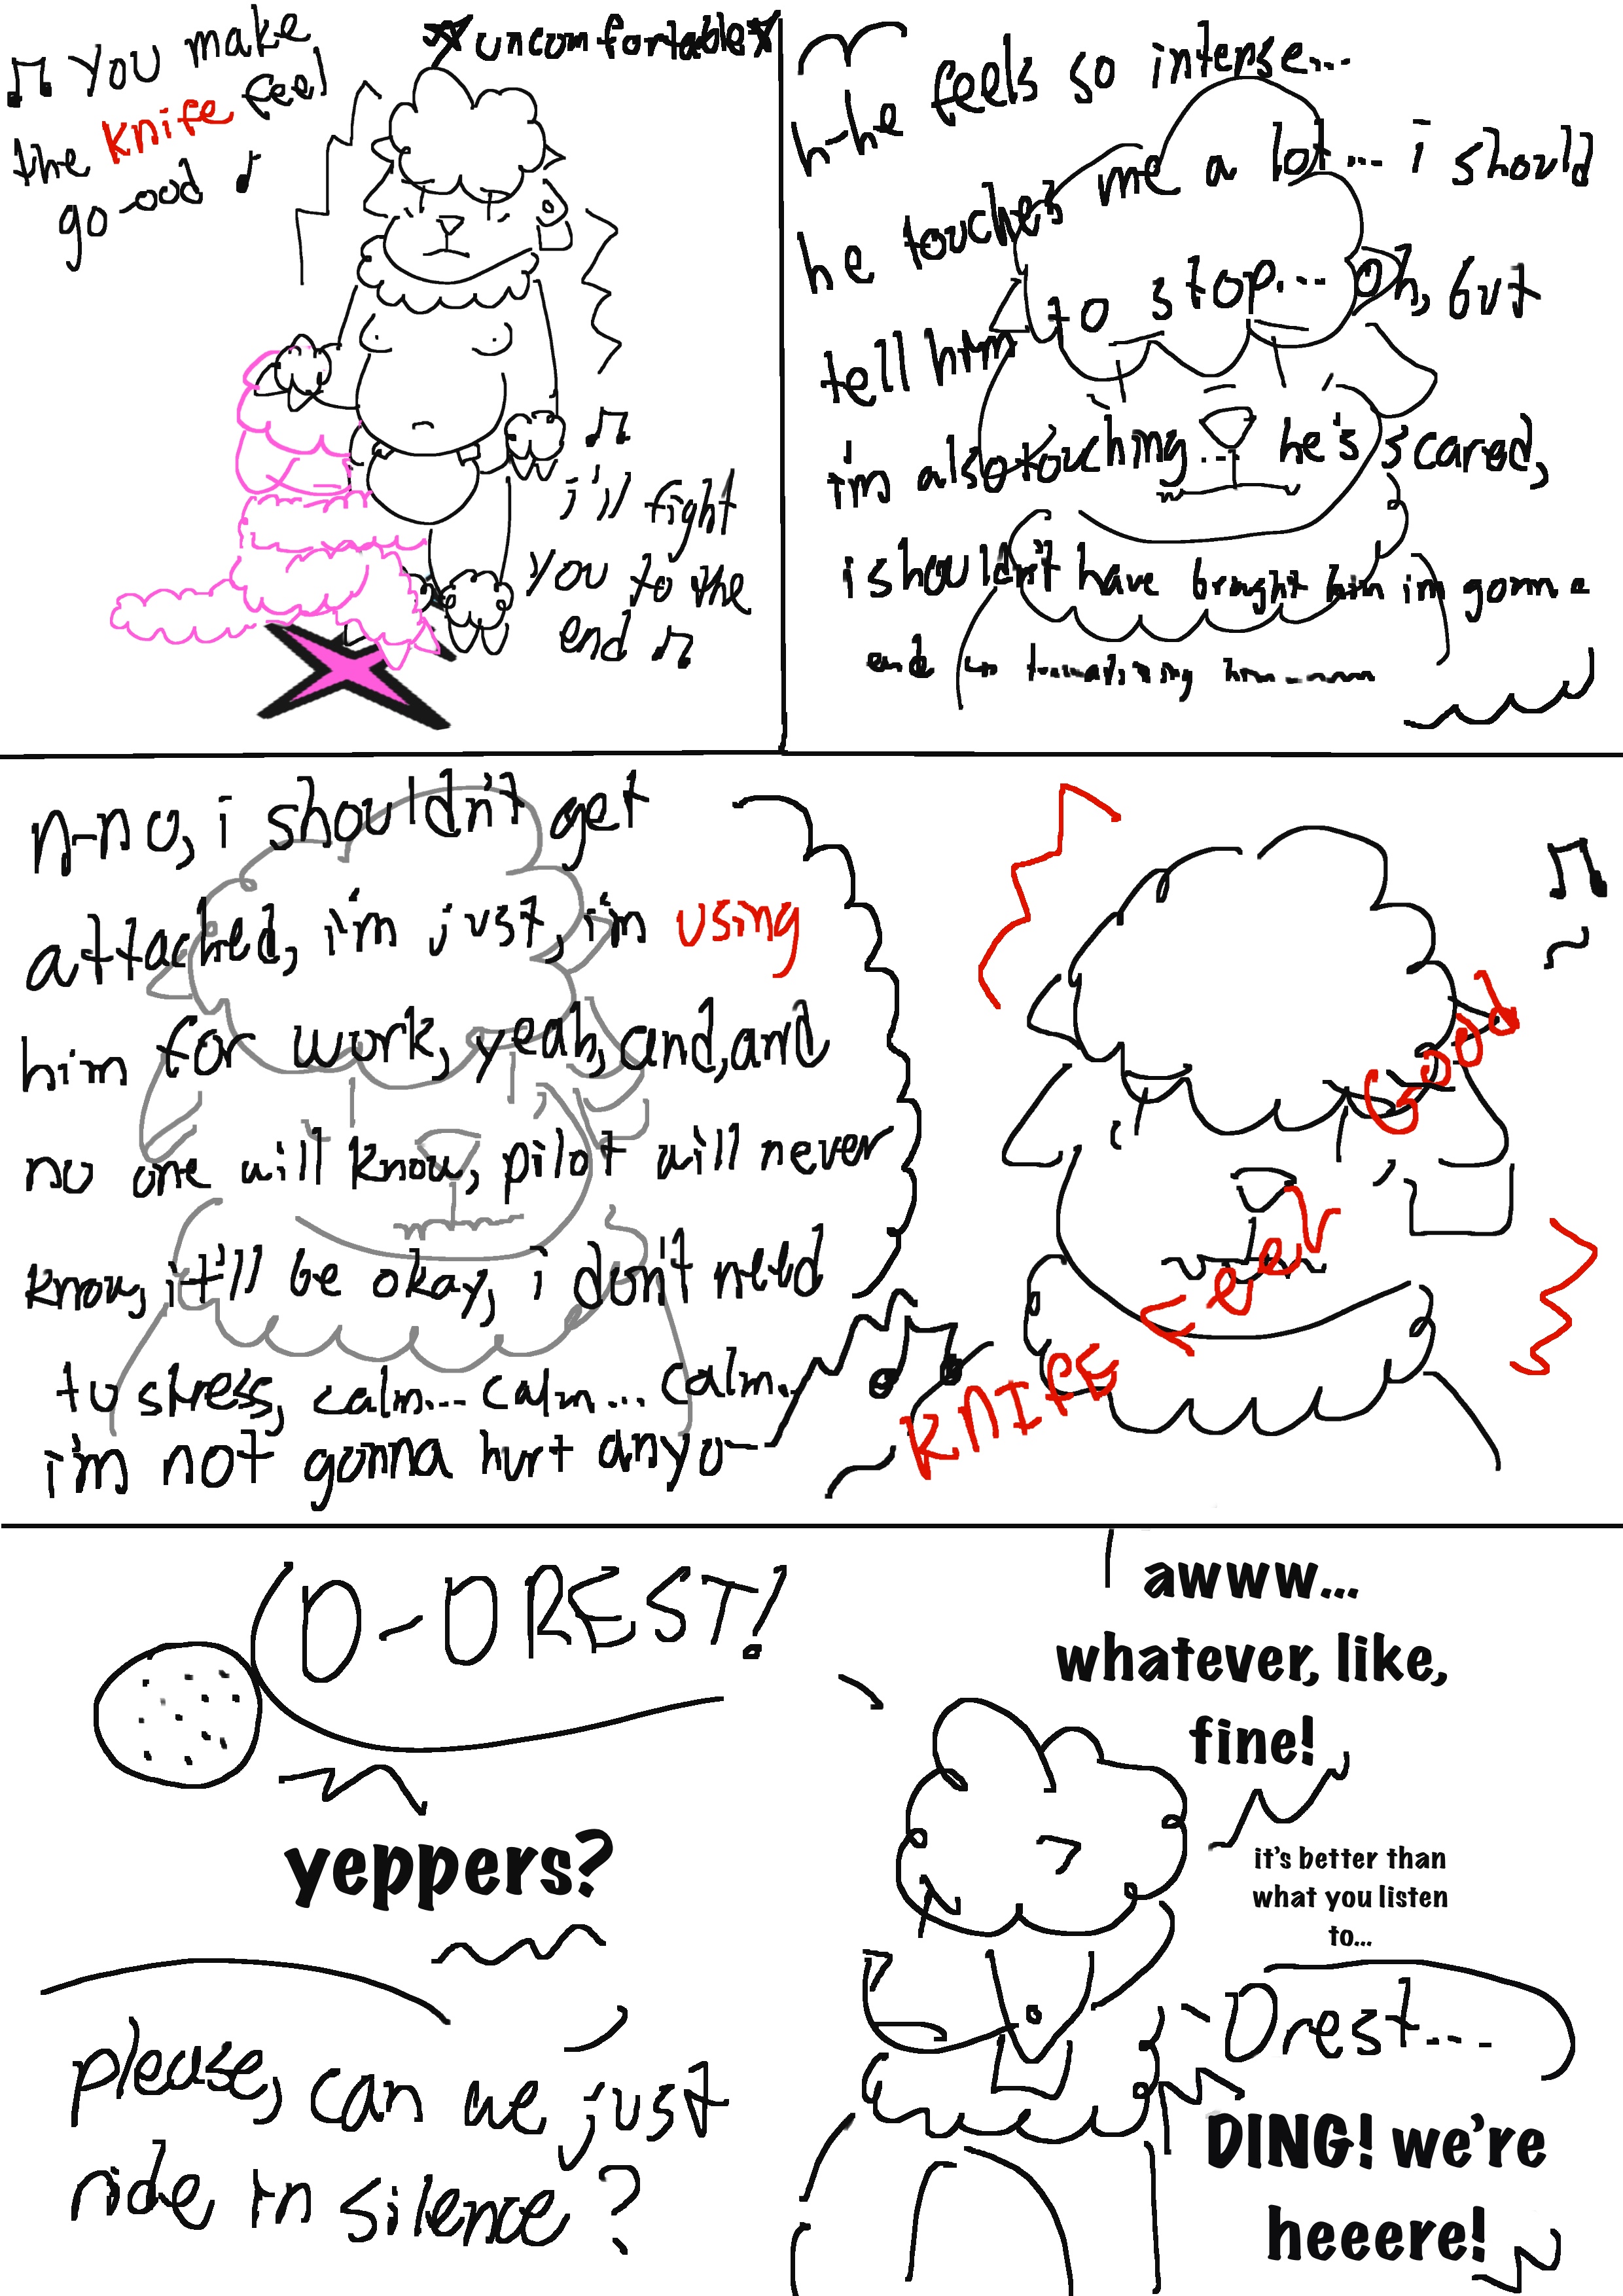 ♫ You make
the knife feel
go-ood ♪
*uncomfortable*
♫
i'll fight
you to the
end ♫
h-he feels so intense...
he touches me a lot... i should
tell him to stop... oh, but
i'm also touching... he's scared,
i shouldn't have brought him im gonna
end up
n-no, i shouldn't get
attached, i'm just, i'm using
him for work, yeah, and, and
no one will know, pilot will never
know, it'll be okay, i don't need
to stress, calm... calm... calm..
i'm not gonna hurt anyo-
♫ KNIFE feel Good ♫ ~
D-DREST!
yeppers?
please, can we just
ride in silence?
awww...
whatever, like,
fine!
it's better than
what you listen
to...
Drest...
DING! we're
heeere!